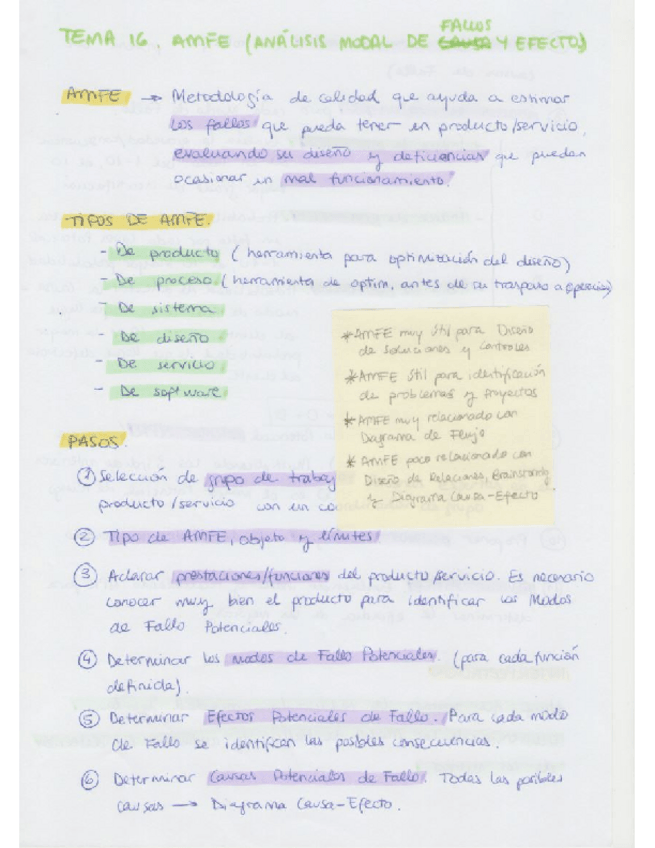 FALLOS
TEMA 16. AMFE (ANÁLISIS MODAL DE CAUSA Y EFECTO)
AMFE → Metodología de calidad que ayuda a estimar
los fallos que pueda tener un producto/servicio,
evaluando su diseño y deficiencias que puedan
ocasionar un mal funcionamiento.
TIPOS DE AMFE.
- De producto (herramienta para optimización del diseño)
- De proceso (herramienta de optim, antes de su traspaso a operación)
- De sistema
- De diseño
- De servicio
- De software
* AMFE muy útil para Diseño
de soluciones y controles
* AMFE útil para identificación
de problemas y Proyectos
* AMFE muy relacionado con
Diagrama de Flujo
* AMFE poco relacionado con
Diseño de Relaciones, Brainstorming
y Diagrama Causa-Efecto
PASOS.
① Selección de grupo de trabaj
producto/servicio con un co
② Tipo de AMFE, objeto y límites
③ Aclarar prestaciones/funciones del producto/servicio. Es necesario
conocer muy bien el producto para identificar los Modos
de Fallo Potenciales.
④ Determinar los modos de Fallo Potenciales. (para cada función
definida).
⑤ Determinar Efectos Potenciales de Fallo. Para cada modo
de Fallo se identifican las posibles consecuencias.
⑥ Determinar Causas Potenciales de Fallo. Todas las posibles
causas → Diagrama Causa-Efecto.